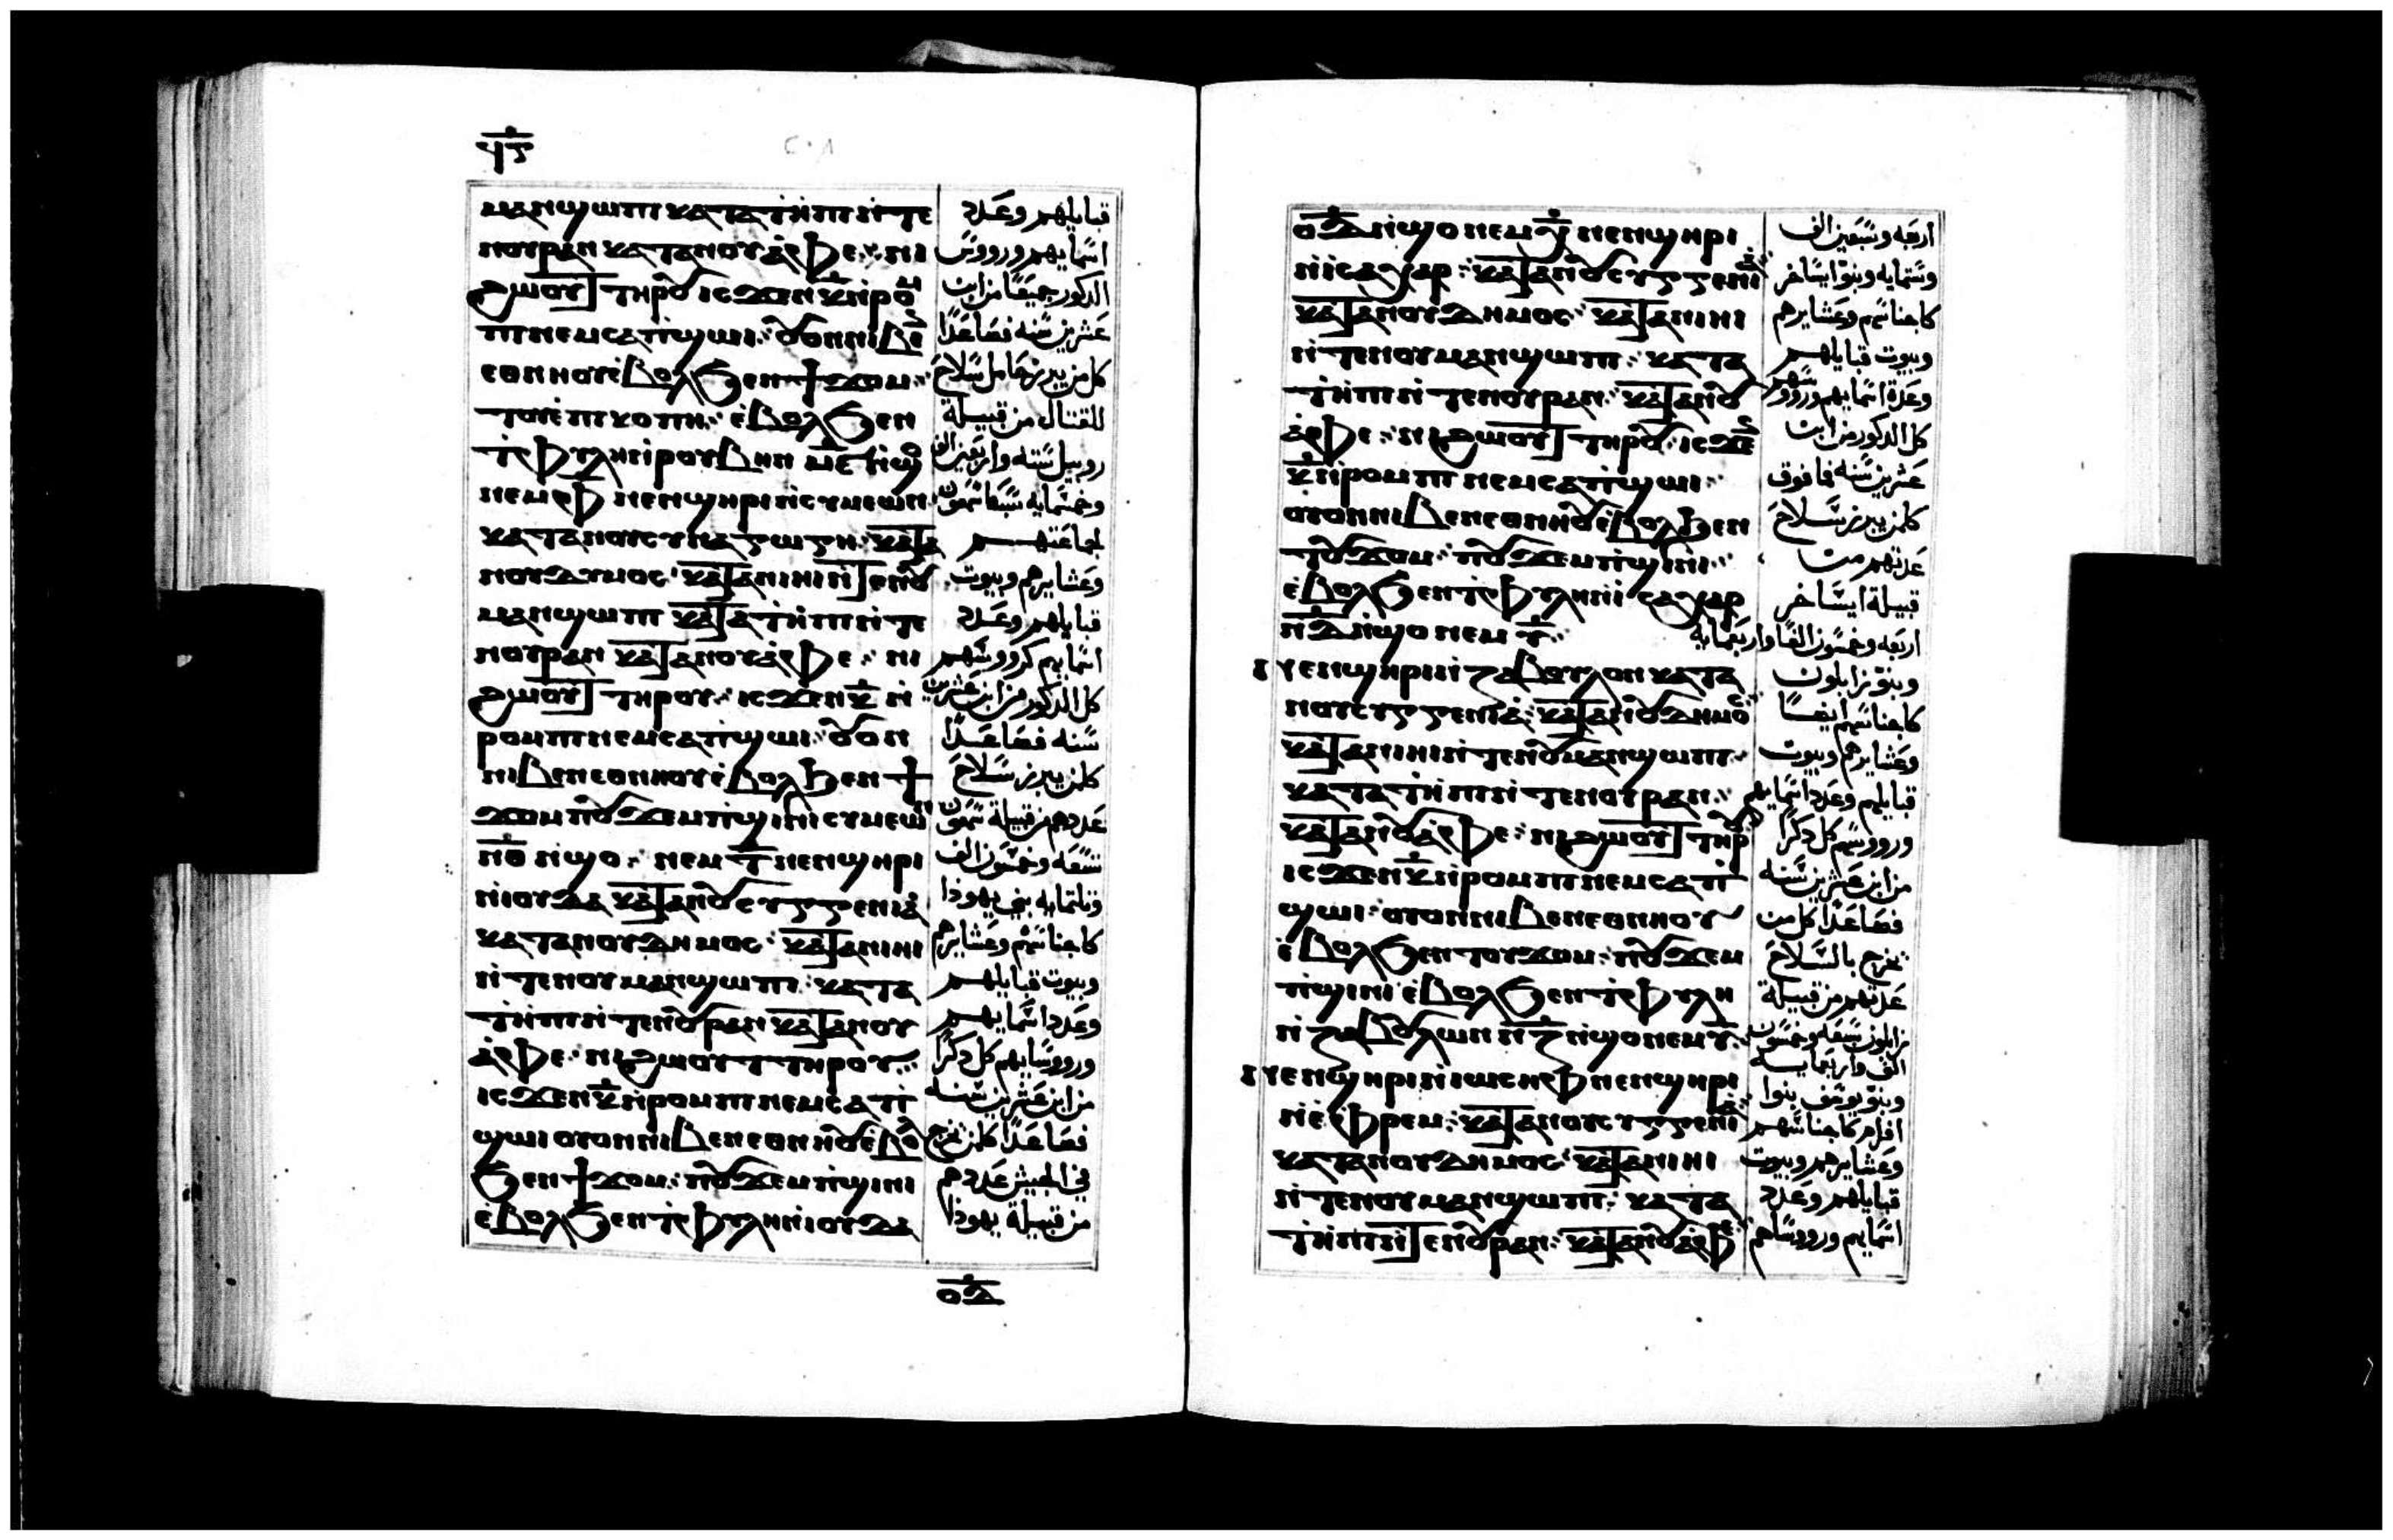 ϥⲋ
ⲙⲁⲛϣⲱⲡⲓ ⲕⲁⲧⲁ ϯⲏⲡⲓ ⲛⲧⲉ
ⲛⲟⲩⲣⲁⲛ ⲕⲁⲧⲁ ⲛⲟⲩⲁⲫⲉ ⲛⲓ
ϩⲱⲟⲩⲧ ⲧⲏⲣⲟⲩ ⲓⲥϫⲉⲛ ⲕ̅ ⲛⲣⲟⲙ
ⲡⲓ ⲛⲉⲙ ⲥⲁⲡϣⲱⲓ ⲟⲩⲟⲛ ⲛⲓⲃⲉⲛ
ⲉⲑⲛⲏⲟⲩ ⲉⲃⲟⲗ ϧⲉⲛ ϯϫⲟⲙ
ⲉⲃⲟⲗ ϧⲉⲛ
ϯⲫⲩⲗⲏ ⲛⲣⲟⲩⲃⲏⲛ ⲙ̅ⲋ̅ ⲛϣⲟ
ⲛⲉⲙ ⲫ ⲛⲉⲛϣⲏⲣⲓ ⲛⲥⲩⲙⲉⲱⲛ
ⲕⲁⲧⲁ ⲛⲟⲩⲥⲩⲛⲁⲅⲱⲅⲏ ⲕⲁⲧⲁ
ⲛⲟⲩⲇⲩⲙⲟⲥ ⲕⲁⲧⲁ ⲛⲓⲏⲓ ⲛⲧⲉ ⲛⲟⲩ
ⲙⲁⲛϣⲱⲡⲓ ⲕⲁⲧⲁ ϯⲏⲡⲓ ⲛⲧⲉ
ⲛⲟⲩⲣⲁⲛ ⲕⲁⲧⲁ ⲛⲟⲩⲁⲫⲉ ⲛⲓ
ϩⲱⲟⲩⲧ ⲧⲏⲣⲟⲩ ⲓⲥϫⲉⲛ ⲕ̅ ⲛ
ⲣⲟⲙⲡⲓ ⲛⲉⲙ ⲥⲁⲡϣⲱⲓ ⲟⲩⲟⲛ
ⲛⲓⲃⲉⲛ ⲉⲑⲛⲏⲟⲩ ⲉⲃⲟⲗ ϧⲉⲛ ϯ
ϫⲟⲙ ⲡⲟⲩϫⲉⲙⲡϣⲓⲛⲓ ⲥⲩⲙⲉⲱⲛ
ⲛ̅ⲑ̅ ⲛϣⲟ ⲛⲉⲙ ⲧ̅ ⲛⲉⲛϣⲏⲣⲓ
ⲛⲓⲟⲩⲇⲁ ⲕⲁⲧⲁ ⲛⲟⲩⲥⲩⲅⲅⲉⲛⲓⲁ
ⲕⲁⲧⲁ ⲛⲟⲩⲇⲏⲙⲟⲥ ⲕⲁⲧⲁ ⲛⲓⲏⲓ
ⲛⲧⲉ ⲛⲟⲩⲙⲁⲛϣⲱⲡⲓ ⲕⲁⲧⲁ
ϯⲏⲡⲓ ⲛⲧⲉ ⲛⲟⲩⲣⲁⲛ ⲕⲁⲧⲁ ⲛⲟⲩ
ⲁⲫⲉ ⲛⲓϩⲱⲟⲩⲧ ⲧⲏⲣⲟⲩ
ⲓⲥϫⲉⲛ ⲕ̅ ⲛⲣⲟⲙⲡⲓ ⲛⲉⲙ ⲥⲁⲡ
ϣⲱⲓ ⲟⲩⲟⲛ ⲛⲓⲃⲉⲛ ⲉⲑⲛⲏⲟⲩ ⲉⲃⲟⲗ
ϧⲉⲛ ϯϫⲟⲙ ⲡⲟⲩϫⲉⲙⲡϣⲓⲛⲓ
ⲉⲃⲟⲗ ϧⲉⲛ ϯⲫⲩⲗⲏ ⲛⲓⲟⲩⲇⲁ
قبايلهم وعدد
اسمايهم ورووس
الذكور جميعا من ابن
عشرين سنه فصاعدا
كل من يبرز حامل سلاح
للقتال من قبيلة
روبيل سته واربعين الف
وخمسمايه
لجماعتهم
وعشايرهم وبيوت
قبايلهم وعدد
اسمايهم كرووسهم
كل الذكور من ابن عشرين
سنه فصاعدا
كلمن يبرز سلاح
عددهم من قبيلة شمعون
تسعه وخمسون الف
وثلثمايه بني يهودا
كاجناسهم وعشايرهم
وبيوت قبايلهم
وعدد اسمايهم
ورووسايهم كل ذكرا
من ابن عشرين سنه
فصاعدا كلمن يخرج
في الجيش عددهم
من قبيلة يهودا
ⲟ̅ⲇ̅
ⲟ̅ⲇ̅ ⲛϣⲟ ⲛⲉⲙ ⲭ̅ ⲛⲉⲛϣⲏⲣⲓ
ⲛⲓⲥⲁⲭⲁⲣ ⲕⲁⲧⲁ ⲛⲟⲩⲥⲩⲅⲅⲉⲛⲓⲁ
ⲕⲁⲧⲁ ⲛⲟⲩⲇⲏⲙⲟⲥ ⲕⲁⲧⲁ ⲛⲓⲏⲓ
ⲛⲧⲉ ⲛⲟⲩⲙⲁⲛϣⲱⲡⲓ ⲕⲁⲧⲁ
ϯⲏⲡⲓ ⲛⲧⲉ ⲛⲟⲩⲣⲁⲛ ⲕⲁⲧⲁ ⲛⲟⲩ
ⲁⲫⲉ ⲛⲓϩⲱⲟⲩⲧ ⲧⲏⲣⲟⲩ ⲓⲥϫⲉⲛ
ⲕ̅ ⲛⲣⲟⲙⲡⲓ ⲛⲉⲙ ⲥⲁⲡϣⲱⲓ
ⲟⲩⲟⲛ ⲛⲓⲃⲉⲛ ⲉⲑⲛⲏⲟⲩ ⲉⲃⲟⲗ ϧⲉⲛ
ⲧⲟⲩϫⲟⲙ ⲡⲟⲩϫⲉⲙⲡϣⲓⲛⲓ
ⲉⲃⲟⲗ ϧⲉⲛ ϯⲫⲩⲗⲏ ⲛⲓⲥⲁⲭⲁⲣ
ⲛ̅ⲇ̅ ⲛϣⲟ ⲛⲉⲙ ⲩ̅
ⲛⲉⲛϣⲏⲣⲓ ⲛⲍⲁⲃⲟⲩⲗⲟⲛ ⲕⲁⲧⲁ
ⲛⲟⲩⲥⲩⲅⲅⲉⲛⲓⲁ ⲕⲁⲧⲁ ⲛⲟⲩⲇⲏⲙⲟⲥ
ⲕⲁⲧⲁ ⲛⲓⲏⲓ ⲛⲧⲉ ⲛⲟⲩⲙⲁⲛϣⲱⲡⲓ
ⲕⲁⲧⲁ ϯⲏⲡⲓ ⲛⲧⲉ ⲛⲟⲩⲣⲁⲛ
ⲕⲁⲧⲁ ⲛⲟⲩⲁⲫⲉ ⲛⲓϩⲱⲟⲩⲧ ⲧⲏⲣⲟⲩ
ⲓⲥϫⲉⲛ ⲕ̅ ⲛⲣⲟⲙⲡⲓ ⲛⲉⲙ ⲥⲁⲡ
ϣⲱⲓ ⲟⲩⲟⲛ ⲛⲓⲃⲉⲛ ⲉⲑⲛⲏⲟⲩ
ⲉⲃⲟⲗ ϧⲉⲛ ⲧⲟⲩϫⲟⲙ ⲡⲟⲩϫⲉⲙ
ⲡϣⲓⲛⲓ ⲉⲃⲟⲗ ϧⲉⲛ ϯⲫⲩⲗⲏ
ⲛⲍⲁⲃⲟⲩⲗⲱⲛ ⲛ̅ⲍ̅ ⲛϣⲟ ⲛⲉⲙ ⲩ̅
ⲛⲉⲛϣⲏⲣⲓ ⲛⲓⲱⲥⲏⲫ ⲛⲉⲛϣⲏⲣⲓ
ⲛⲉⲫⲣⲉⲙ ⲕⲁⲧⲁ ⲛⲟⲩⲥⲩⲅⲅⲉⲛⲓⲁ
ⲕⲁⲧⲁ ⲛⲟⲩⲇⲏⲙⲟⲥ ⲕⲁⲧⲁ ⲛⲓⲏⲓ
ⲛⲧⲉ ⲛⲟⲩⲙⲁⲛϣⲱⲡⲓ ⲕⲁⲧⲁ
ϯⲏⲡⲓ ⲛⲧⲉ ⲛⲟⲩⲣⲁⲛ ⲕⲁⲧⲁ ⲛⲟⲩⲁⲫⲉ
اربعه وسبعين الف
وستمايه وبنوا ايساخر
كاجناسهم وعشايرهم
وبيوت قبايلهم
وعدة اسمايهم ورووسهم
كل الذكور من ابن
عشرين سنه فما فوق
كلمن يبرز سلاح
عدتهم من
قبيلة ايساخر
اربعه وخمسون الفا واربعمايه
وبنو زابلون
كاجناسهم ايضا
وعشايرهم وبيوت
قبايلهم وعدد اسمايهم
ورووسهم كل ذكرا
من ابن عشرين سنه
فصاعدا كل من
يخرج بالسلاح
عدتهم من قبيلة
زابلون سبعه وخمسون
الف واربعمايه
وبنو يوسف بنوا
افرام كاجناسهم
وعشايرهم وبيوت
قبايلهم وعدد
اسمايهم ورووساهم